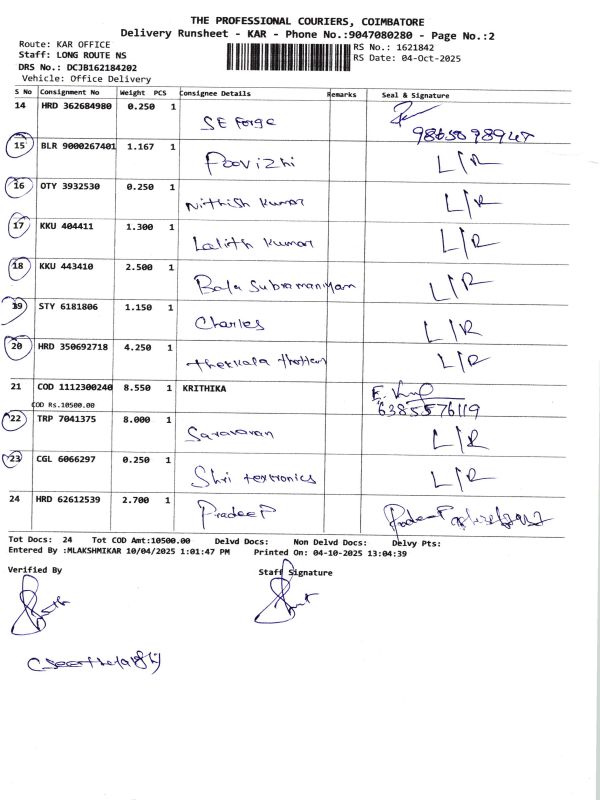 THE PROFESSIONAL COURIERS, COIMBATORE
Delivery Runsheet - KAR - Phone No.:9047080280 - Page No.:2
Route: KAR OFFICE RS No.: 1621842
Staff: LONG ROUTE NS RS Date: 04-Oct-2025
DRS No.: DCJB162184202
Vehicle: Office Delivery
S No Consignment No Weight PCS Consignee Details Remarks Seal & Signature
14 HRD 362684980 0.250 1 SE Forge
15 BLR 9000267401 1.167 1 Poovizhi L/R
16 OTY 3932530 0.250 1 Nithish Kumar L/R
17 KKU 404411 1.300 1 Lalith Kumar L/R
18 KKU 443410 2.500 1 Bala Subramaniyam L/R
19 STY 6181806 1.150 1 Charles L/R
20 HRD 350692718 4.250 1 L/R
21 COD 1112300240 8.550 1 KRITHIKA
COD Rs.10500.00 6385576119
22 TRP 7041375 8.000 1 Saravanan L/R
23 CGL 6066297 0.250 1 Shri textronics L/R
24 HRD 62612539 2.700 1 Pradeep Pradeep
Tot Docs: 24 Tot COD Amt:10500.00 Delvd Docs: Non Delvd Docs: Delvy Pts:
Entered By :MLAKSHMIKAR 10/04/2025 1:01:47 PM Printed On: 04-10-2025 13:04:39
Verified By Staff Signature